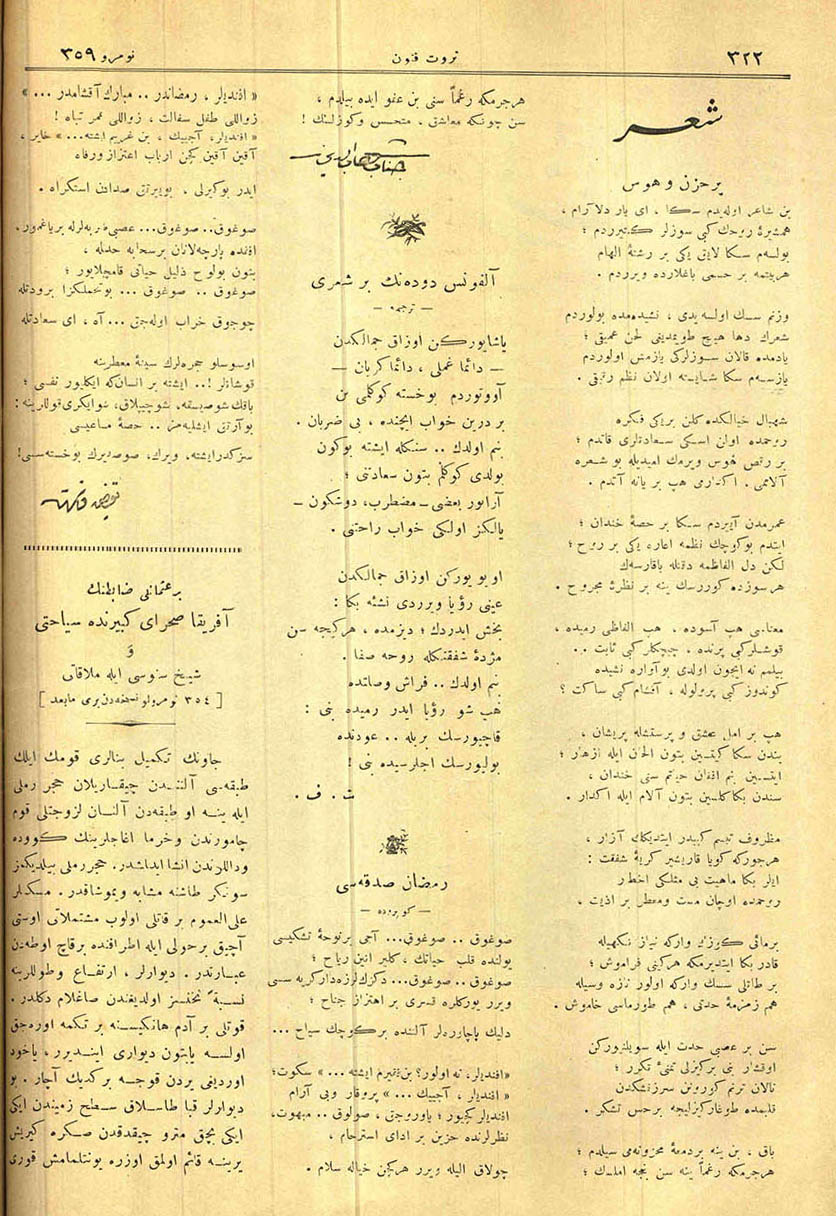 ٣٢٢
ثروت فنون
نومرو ٣٥٩
شعر
پر حزن و هوس
بن شاعر اوله‌یدم ــ سكا ، ای یار دلآرام ،
همشیرۀ روحك كبی سوزلر كتیرردم ؛
بولسه‌م سكا لایق یكی بر رشتۀ الهام
هر بیتمه بر حسمی باغلارده ویرردم .
وزنم سسك اولسه‌یدی ، نشیده‌مده بولوردم
شعرك دها هیچ طویمدیغی لحن عمیقی ؛
یادمده قالان سوزلركی یازمش اولوردم
یازسه‌م سكا شایسته اولان نظم رقیقی .
شهبال خیالكده كلن بر یكی فكره
روحمده اولن اسكی سعادتلری قاتدم ؛
بر رقص هوس ویرمك امیدیله بو شعره
آلاممی . اكدارمی هپ بر یانه آتدم .
عمرمدن آییردم سكا بر حصۀ خندان ؛
ایتدم بو كوچك نظمه اعاره یكی بر روح ؛
لكن دل الفاظمه دقتله باقارسه‌ك
هر سوزده كوررسك ینه بر نظرۀ مجروح .
معناسی هپ آسوده ، هپ الفاظی رمیده ،
قوشلر كبی پرنده ، چیچكلر كبی ثابت . .
بیلمم نه ایچون اولدی بو آواره نشیده
كوندوز كبی پرولوله ، آقشام كبی ساكت ؟
هپ بر امل عشق و پرستشله پریشان ،
بندن سكا كیتسین بتون الحان ایله ازهار ؛
ایتسین بنم افغان حیاتم سنی خندان ،
سندن بكا كلسین بتون آلام ایله اكدار .
مظروف تبسم كبیدر ایتدیكك آزار ،
هر جوركه كویا قاریشیر كریۀ شفقت :
ایلر بكا ماهیت بی مثلكی اخطار
روحمده اوچان مست و معطر بر اذیت ،
بر مائی كوزك واركه نیاز نكهیله
قادر بكا ایتدیرمكه هر كینی فراموش ؛
بر طاتلی سسك واركه اولور تازه وسیله
هم زمزمۀ حدتی ، هم طورماسی خاموش .
سن بر عصبی حدت ایله سویلنیوركن
اوقشار بنی بر كیزلی تمنئ تكرر ؛
نالان ترنم كورونن سرزنشكدن
قلبمده طوغار كیزلیجه بر حس تشكر .
باق ، بن ینه بر دمعۀ محزونه‌می سیلدم ؛
هر جرمكه رغماً ینه سن نجه املسك ؛
هر جرمكه رغماً سنی بن عفو ایده بیلدم ،
سن چونكه معاشق ، متحسس و كوزلسك !
جناب شهاب‌الدین
آلفونس دوده‌نك بر شعری
— ترجمه —
یاشایوركن اوزاق جمالكدن
— دائما غملی ، دائما كریان —
آووتوردم بو خسته كوكلمی بن
بر درین خواب ایچنده ، بی ضربان .
بنم اولدك .. سنكله ایشته بوكون
بولدی كوكلم بتون سعادتنی ؛
آرایور بعضی ــ مضطرب، دوشكون ــ
یالكز اولكی خواب راحتنی .
اویویوركن اوزاق جمالكدن
عینی رؤیا ویرردی نشئه بكا :
بخش ایدردك ؛ دیزمده ، هر كیجه سن
مژدۀ شفقتكله روحه صفا .
بنم اولدك .. فراش وصلتده
هپ شو رؤیا ایدر رمیده بنی :
قاچیورسك بریله .. عودنده
بولیورسك اجلرسیده بنی !
ت . ف .
رمضان صدقه‌سی
— كوپروده —
صوغوق .. صوغوق... آجی بر نوحۀ تشكیسی
یولنده قلب حیاتك ، كلیر انین ریاح ؛
صوغوق .. صوغوق... دكزك لرزه‌دار كریه سی
ویرر یوركلره قدسی بر اهتزاز جناح ؛
دلیك پاچاورەلر آلتنده بر كوچك سیاح ...
«افندیلر، نه اولور؟ بن یتیمم ایشته ... » سكوت؛
« افندیلر ، آجییك ... » پر وقار و بی آرام
افندیلر كچیور ؛ یاوروجق ، صولوق .. مبهوت،
نظرلرنده حزین بر ادای استرحام ،
چولاق الیله ویرر هر كچن خیاله سلام .
« افندیلر ، رمضاندر .. مبارك آقشامدر ... »
زواللی طفل سفالت ، زواللی عمر تباه !
« افندیلر، آجییك ، بن غریبم ایشته... » خایر ،
آقین آقین كچن ارباب اعتزاز و رفاه
ایدر بو كیرلی ، بو ییرتیق صدادن استكراه .
صوغوق.. صوغوق... عصبی ضربه‌لرله بر یاغمور،
افقده پارچه‌لانان بر سحابه حمله ،
بتون بو لوح ذلیل حیاتی قامچلایور ؛
صوغوق .. صوغوق ... بو تحملكزا برودتله
چوجوق خراب اوله‌جق ... آه ، ای سعادتله
او سوسلو حجره‌لرك سینۀ معطرینه
قوشانلر !.. ایشته بر انسان كه ایكلیور نفسی ؛
باقك شو صیسقه، شو چیپلاق، شو ایكری قوللرینه:
بو آرتق ایشلیه‌مز .. حصۀ مساعیسی
سزكدر ایشته، ویرك، صوصدیرك بو خسته سسی!
توفیق فكرت
بر عثمانلی ضابطنك
آفریقا صحرای كبیرنده سیاحتی
و
شیخ سنوسی ایله ملاقاتی
[ ٣٥٤ نومرولو نسخه‌دن بری مابعد ]
جاونك تكمیل بنالری قومك ایلك
طبقه‌سی آلتندن چیقاریلان حجر رملی
ایله ینه او طبقه‌دن آلنان لزوجتلی قوم
چامورندن و خرما اغاجلرینك كووده
و داللرندن انشا ایدلشدر. حجر رملی بیلدیكمز
سونكر طاشنه مشابه و یموشاقدر . مسكنلر
علی‌العموم بر قاتلی اولوب مشتملاتی اوستی
آچیق بر حولی ایله اطرافنده بر قاچ اوطه‌دن
عبارتدر . دیوارلر ، ارتفاع و طوللرینه
نسبةً نحیف اولدیغندن صاغلام دكلدر .
قوتلی بر آدم هانكیسنه بر تكمه اوره‌جق
اولسه یا بتون دیواری ایندیرر ، یاخود
اوردیغی یردن قوجه بر كدیك آچار . بو
دیوارلر قبا طاسلاق سطح زمیندن ایكی
ایكی بچق مترو چیقدقدن صكره كیریش
یرینه قائم اولمق اوزره یونتلمامش قوری